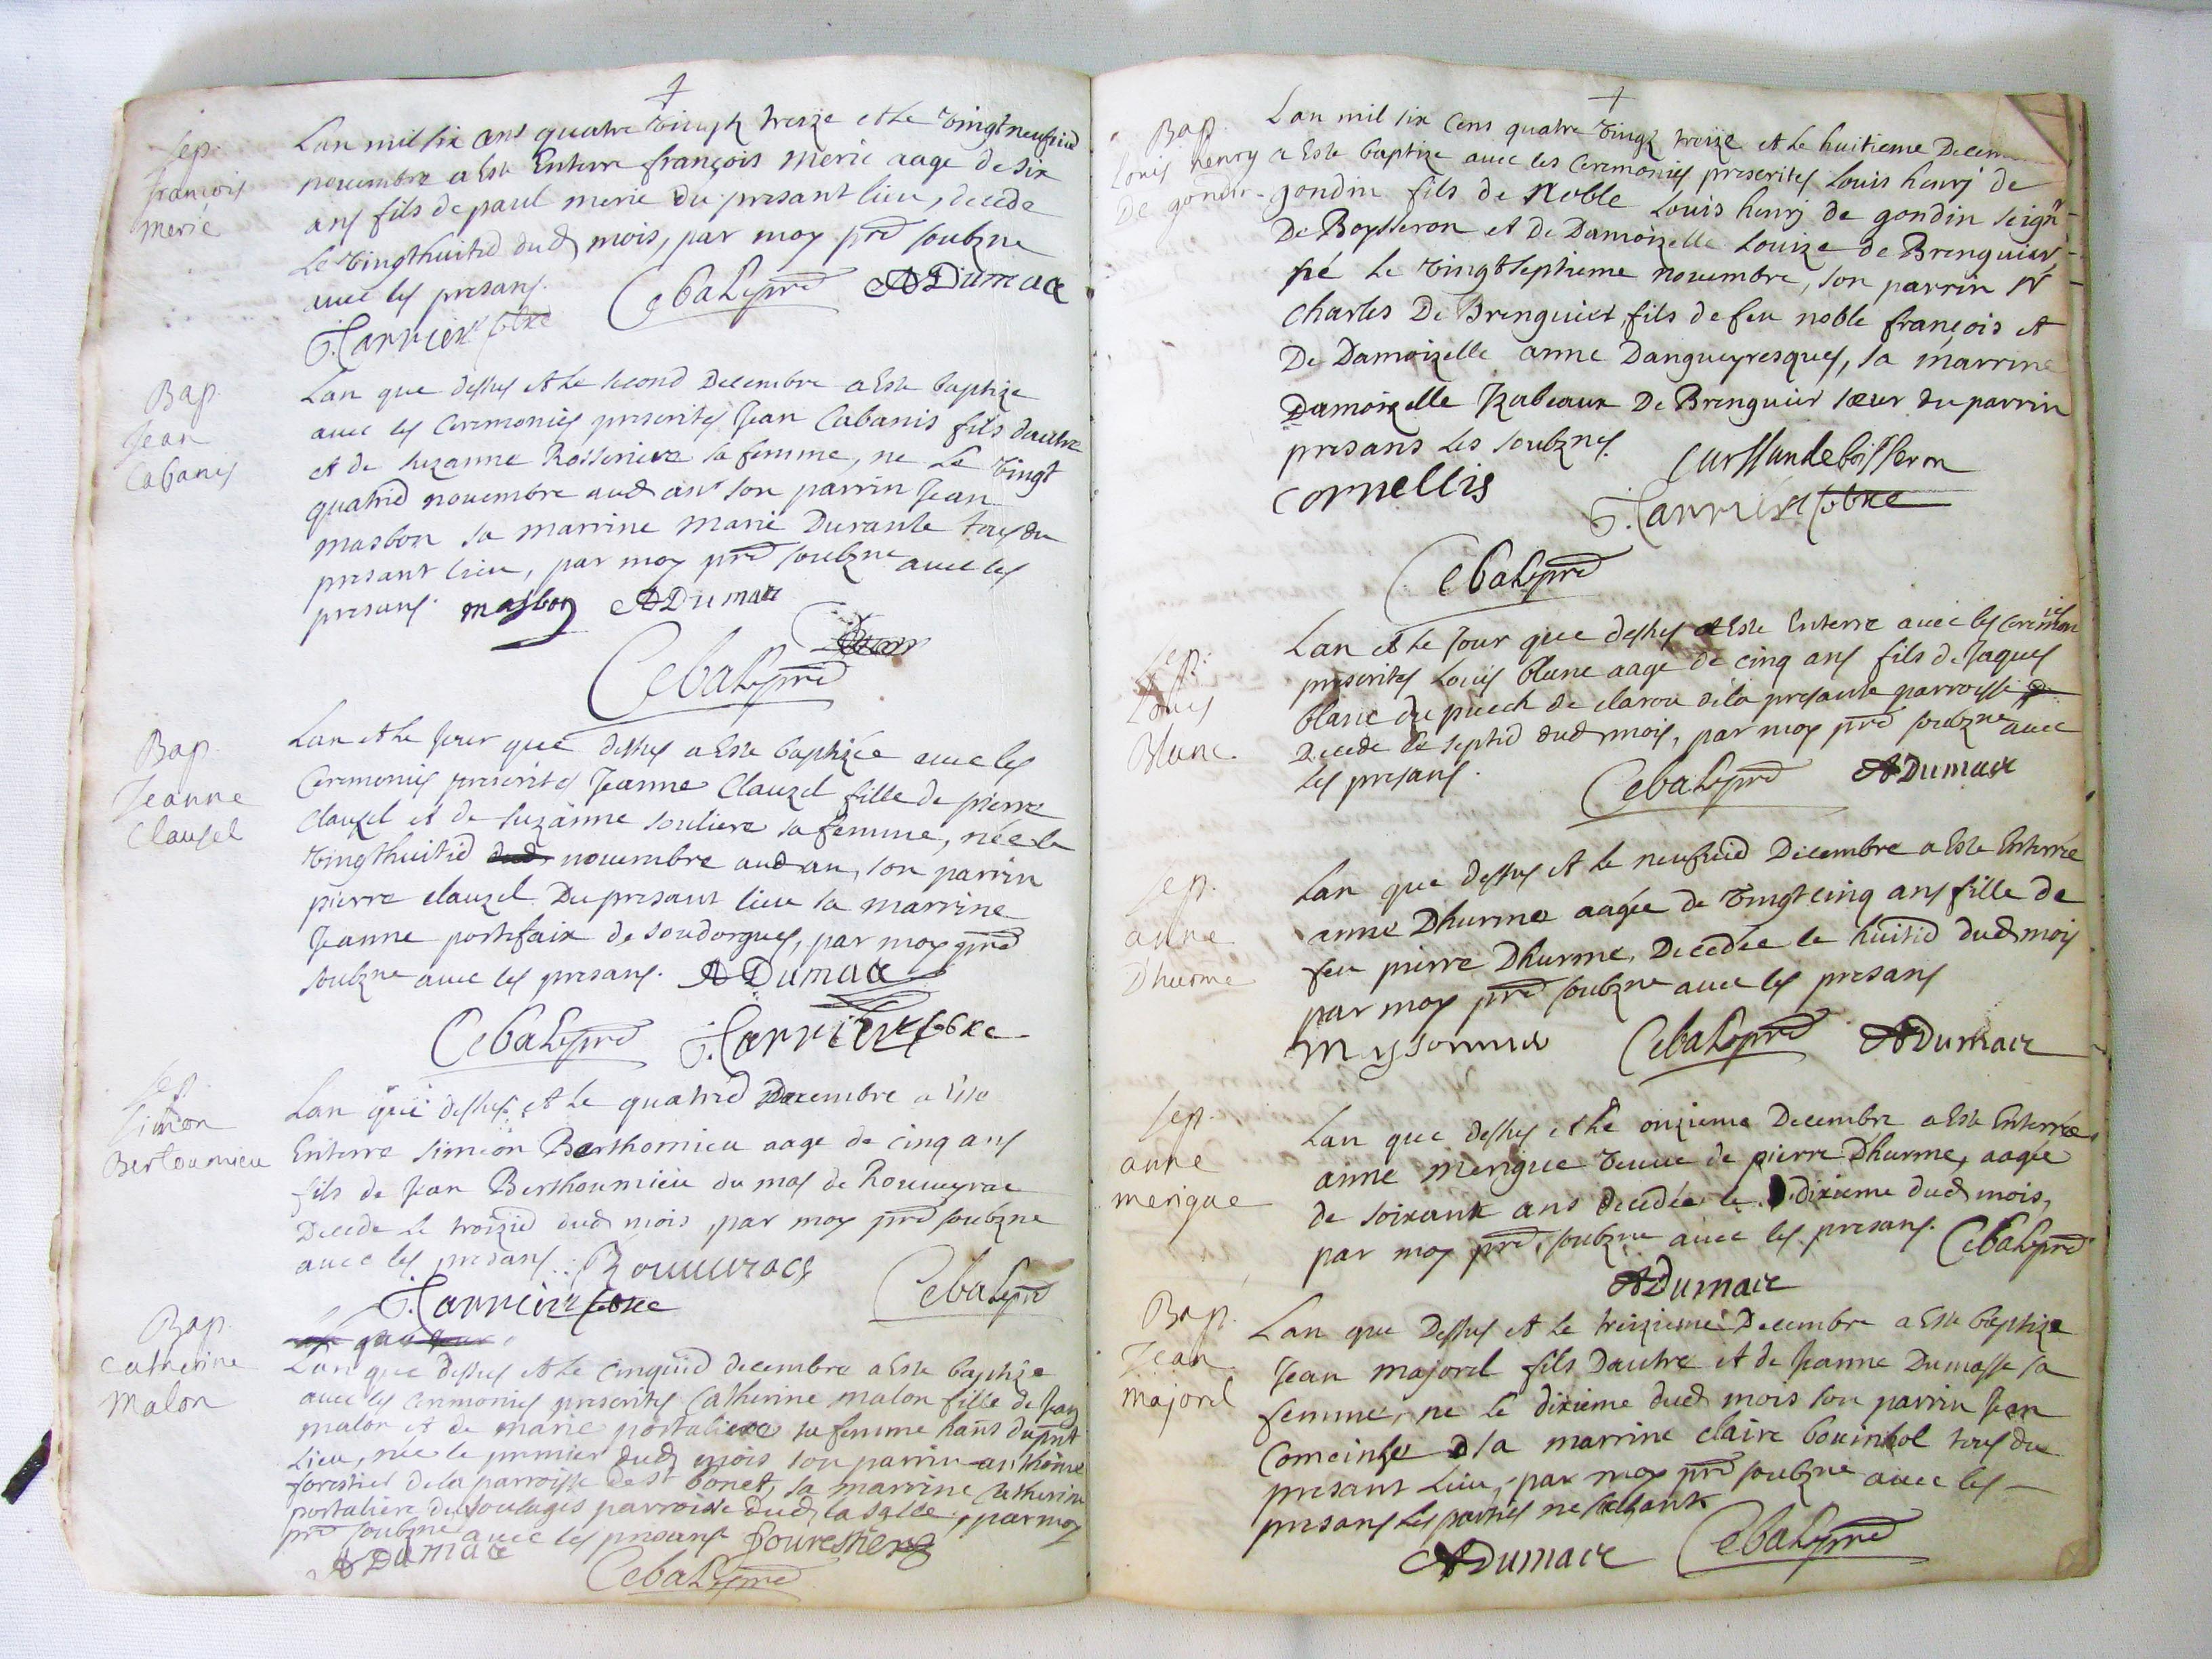 Sep.
françois
merie
Lan mil six cens quatre vingtz treize et le vingtneufvie
novembre a este Enterre françois merie aage de six
ans fils de paul merie du presant lieu, decede
le vingthuitie dud mois, par moy pre soubzne
avec les presans.
ADumas
Bap.
Jean
Cabanis
Lan que dessus et le second Decembre a este baptize
avec les Ceremonies prescrites Jean Cabanis fils dautre
et de suzanne Rosseriere sa femme, ne le vingt
quatrie novembre aud an son parrin Jean
masbon sa marrine marie Durante tous du
presant lieu, par moy pre soubzne avec les
presans. masbon ADumas
Bap.
Jeanne
Clausel
Lan et le Jour que dessus a este baptizée avec les
Ceremonies prescrites Jeanne Clauzel fille de pierre
Clauzel et de suzanne souliere sa femme, née le
vingthuitie dud novembre aud an, son parrin
pierre clauzel Du presant lieu sa marrine
Jeanne portefaix de soudorgues, par moy pre
soubzne avec les presans. ADumas
Sep.
Simeon
Bertoumieu
Lan que dessus et le quatrie Decembre a este
Enterre simeon Berthomieu aage de cinq ans
fils de Jean Berthoumieu du mas de Rouveyrac
Decede le troizie dud mois, par moy pre soubzne
avec les presans.
Bap.
Catherine
Malon
Lan que dessus et le cinquie decembre a este baptize
avec les ceremonies prescrites Catherine malon fille de Jean
malon et de marie portaliere sa femme hans du pnt
lieu, née le premier dud mois son parrin anthoine
forestier de la parroisse de st bonet, sa marrine Catherine
portaliere de soulages parroisse dud lasalle, par moy
pre soubzne avec les presans fourestier
ADumas
Bap.
Louis henry
De gondin
Lan mil six cens quatre vingtz treize et le huitieme Decem
a este baptize avec les Ceremonies prescrites Louis henrj de
gondin fils de Noble Louis henrj de gondin seignr
De Boysseron et de Damoizelle Louize de Brenguier
né le vingtseptieme novembre, son parrin Nr
Charles De Brenguier, fils de feu noble françois et
De Damoizelle anne Dangueyresques, sa marrine
Damoizelle Izabeaux De Brenguier sœur du parrin
presans les soubznes.
Cornellis
Sep.
Louis
Blanc
Lan et le Jour que dessus a Este Enterre avec les ceremonies
prescrites Louis blanc aage de cinq ans fils de Jaques
blanc du puech de clarou de la presante parroisse
Decede le septie dud mois, par moy pre soubzne avec
les presans.
ADumas
Sep.
anne
Dhurme
Lan que dessus et le neufvie Decembre a este Enterrée
anne Dhurme aagée de vingt cinq ans fille de
feu pierre Dhurme, Decedée le huitie dud mois
par moy pre soubzne avec les presans
ADumas
Sep.
anne
merigue
Lan que dessus et le onzieme Decembre a este Enterrée
anne merigue veuve de pierre Dhurme, aagée
de soixante ans decedée le dixieme dud mois,
par moy pre soubzne avec les presans.
ADumas
Bap.
Jean
majorel
Lan que Dessus et le treizieme Decembre a este baptize
Jean majorel fils Dautre et de Jeanne Dumasse sa
femme, ne le dixieme dud mois son parrin Jean
sa marrine claire tous du
presant lieu, par moy pre soubzne avec les
presans les parties ne sachant
ADumas